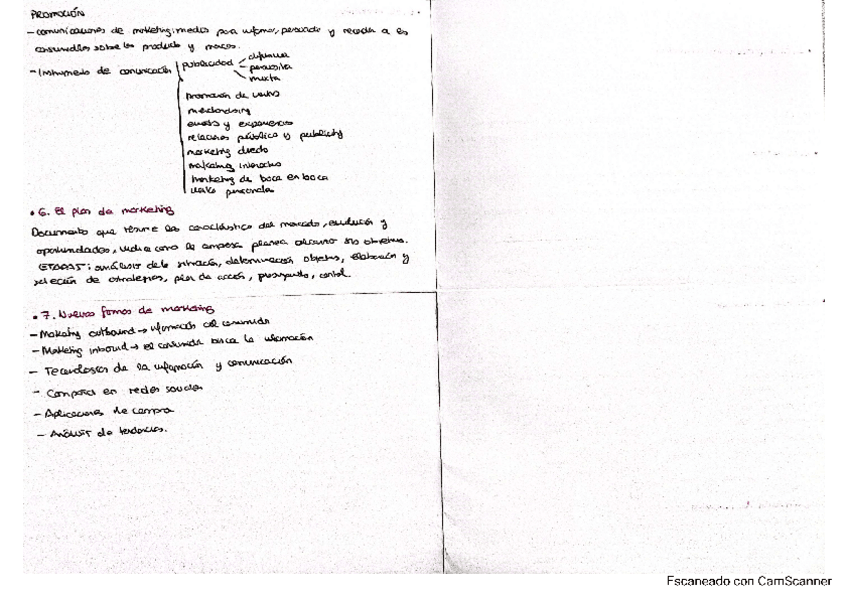 PROMOCIÓN
- comunicaciones de marketing: medios para informar, persuadir y recordar a los
consumidores sobre los productos y marcas.
- Instrumentos de comunicación
publicidad
difusiva
persuasiva
mixta
promoción de ventas
merchandising
eventos y experiencias
relaciones públicas y publicity
marketing directo
marketing interactivo
marketing de boca en boca
ventas personales
• 6. El plan de marketing
Documento que resume las características del mercado, evolución y
oportunidades, indica como la empresa planea alcanzar sus objetivos.
ETAPAS: análisis de la situación, determinación objetivos, elaboración y
selección de estrategias, plan de acción, presupuesto, control.
• 7. Nuevas formas de marketing
- Marketing outbound → información al consumidor
- Marketing inbound → el consumidor busca la información
- Tecnologías de la información y comunicación
- Compras en redes sociales
- Aplicaciones de compra
- Análisis de tendencias.
Escaneado con CamScanner